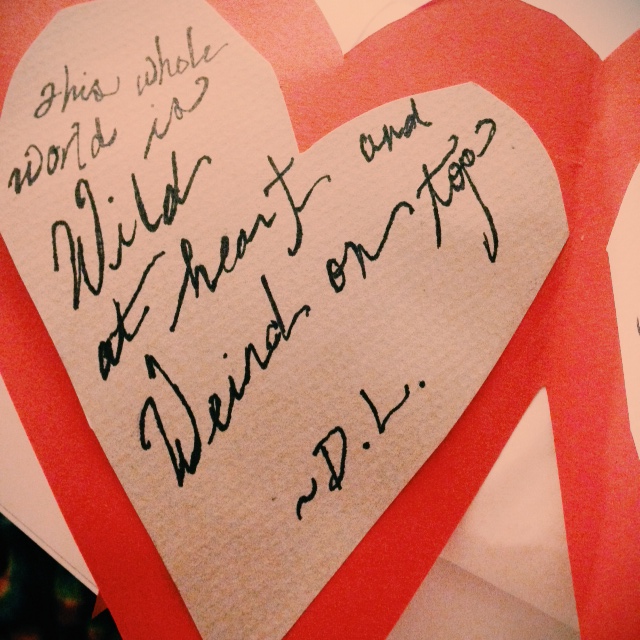 This whole
world is
Wild
at heart and
Weird on top
~D.L.